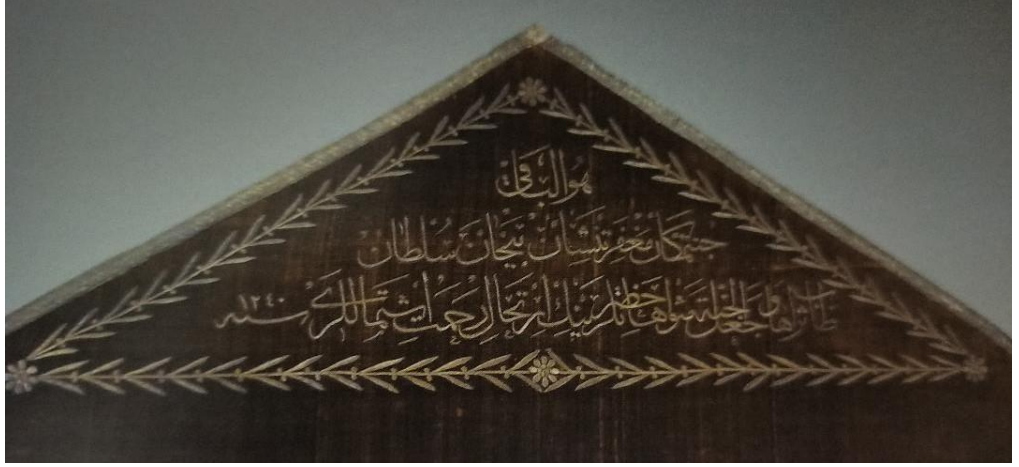 هو الباقي
جنتمكان مغفرتنشان بيخان سلطان
طاب ثراها وجعل الجنة مثواها حضرتلرينك ارتحال رحمت اشتماللرى سنه ١٢٤٠